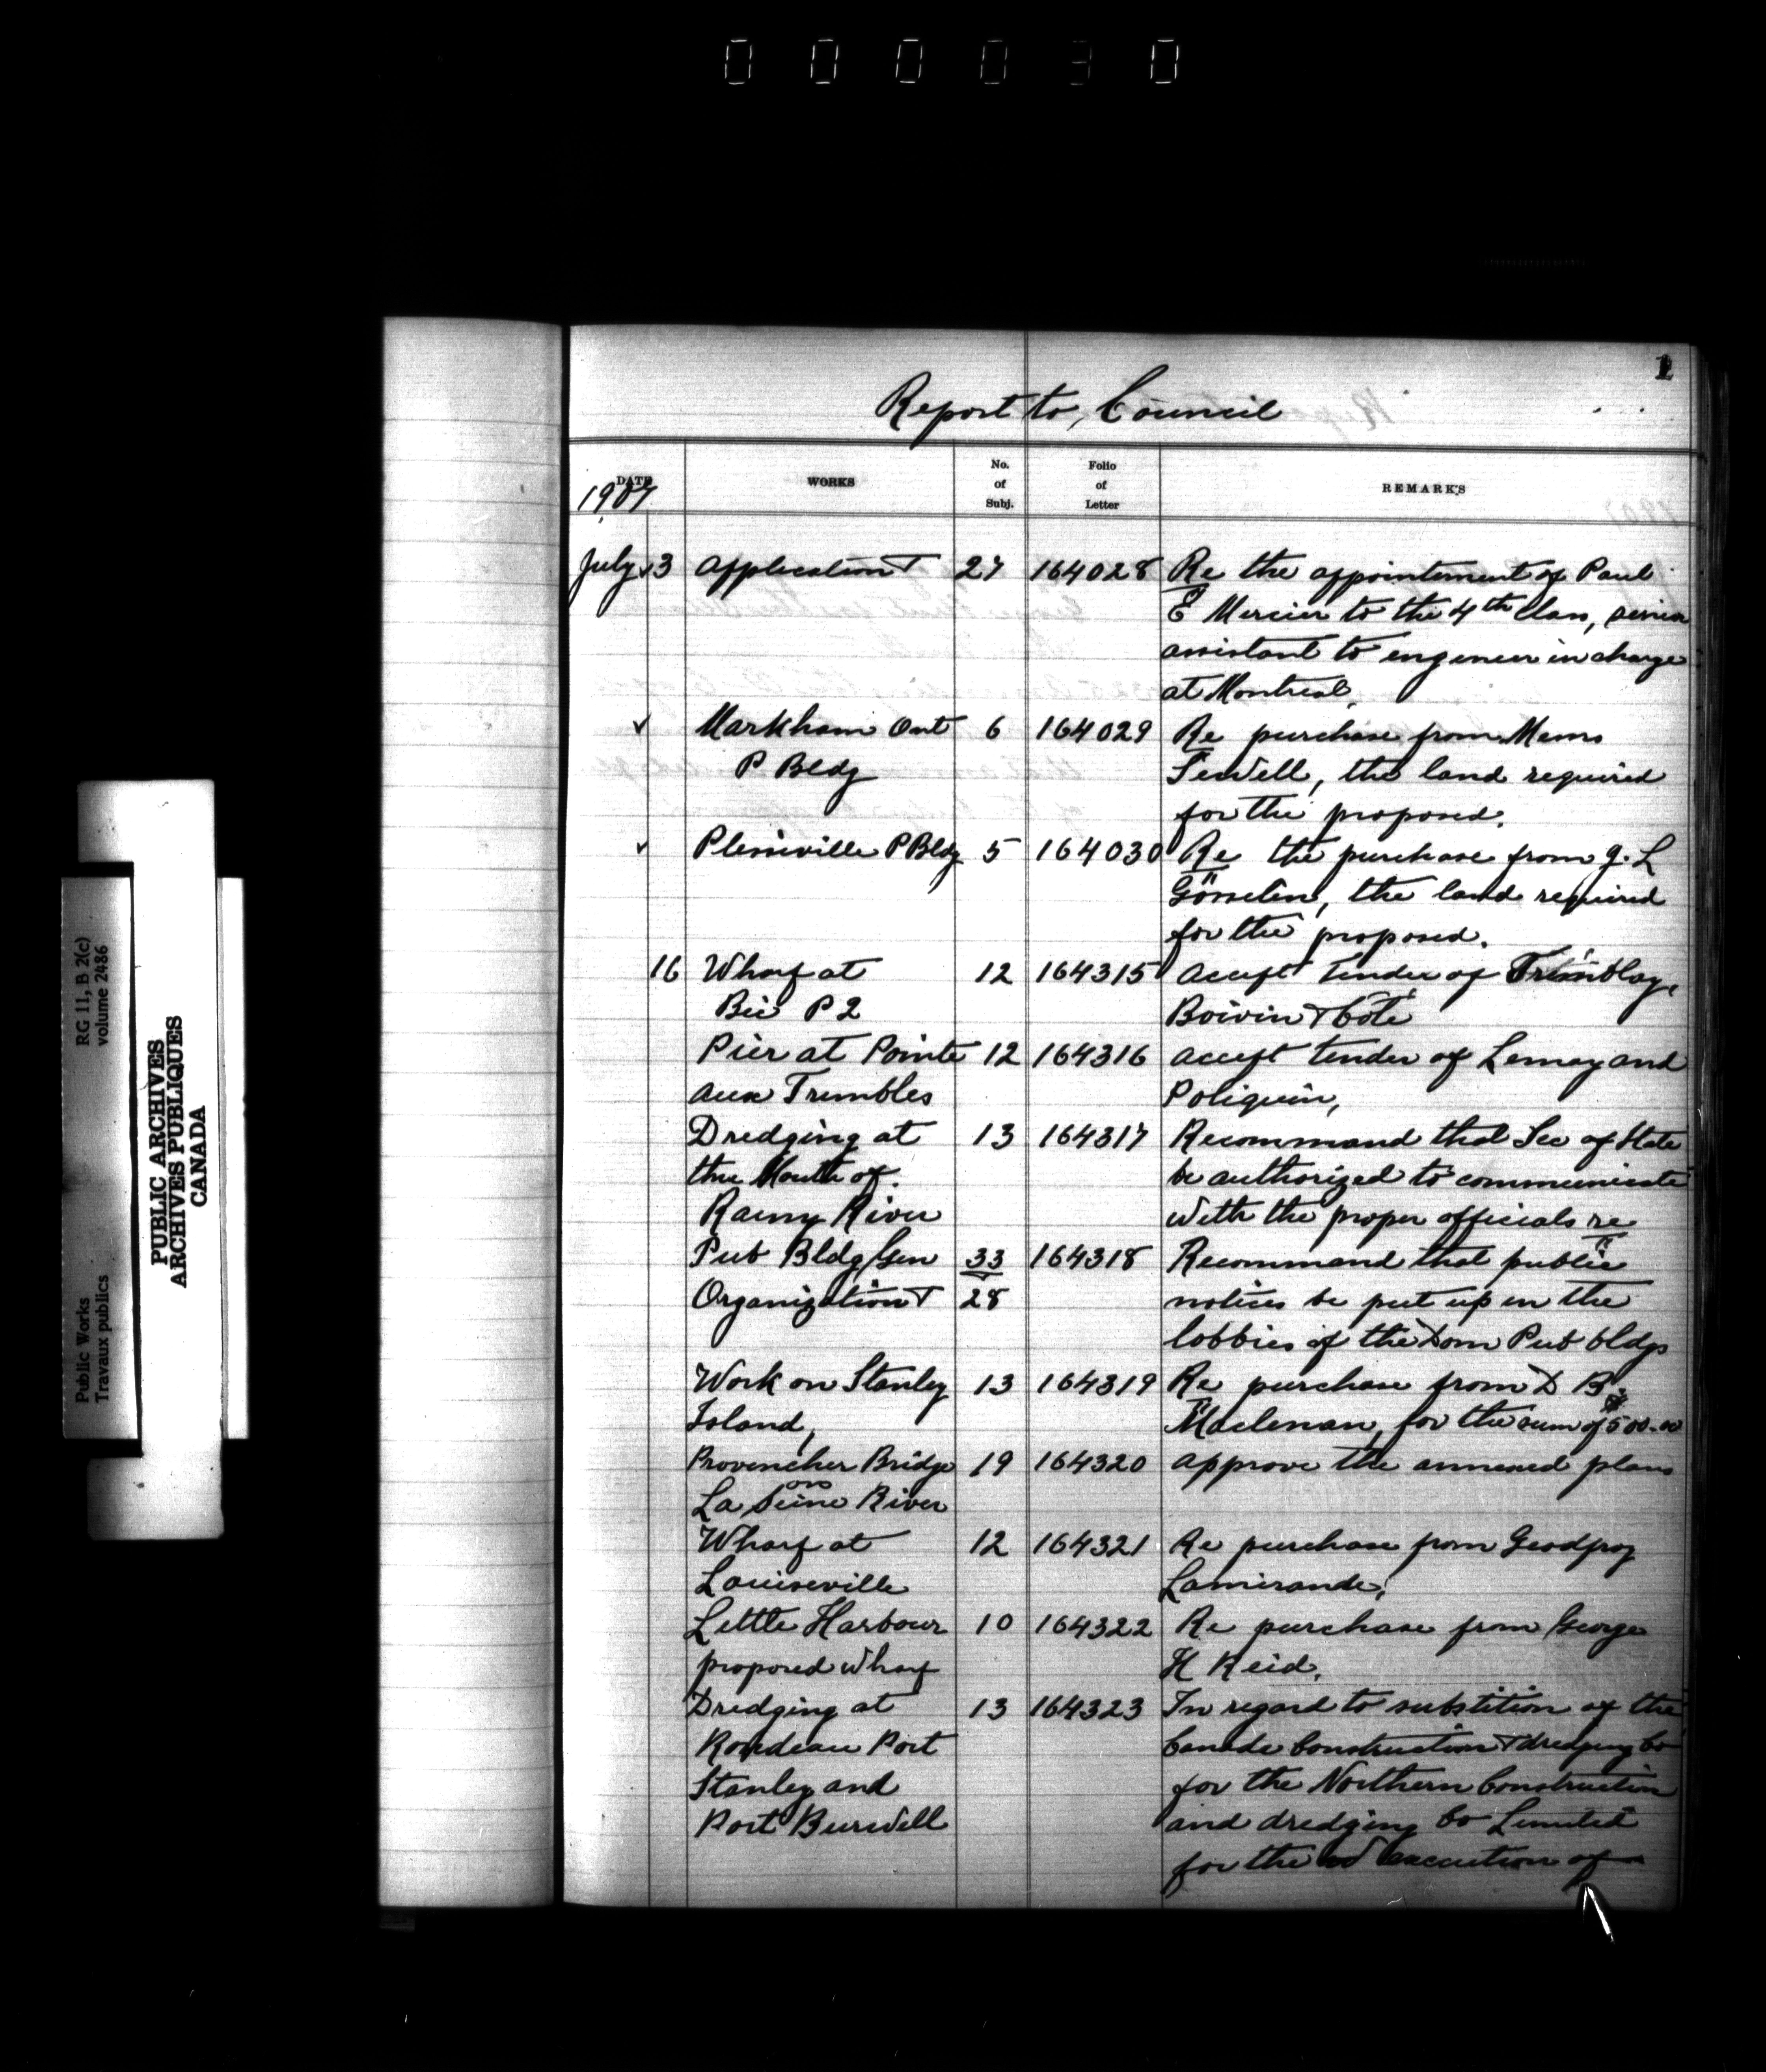 0 0 0 0 3 0
1
Report to, Council
DATE WORKS No. of Subj. Folio of Letter REMARKS
1907
July 3 Application 27 164028 Re the appointement of Paul
E Mercier to the 4th class, senior
assistant to engineer in charge
at Montreal.
Markham Ont 6 164029 Re purchase from
P Bldg the land required
for the proposed.
Plessiville P Bldg 5 164030 Re the purchase from J. L
Gosselin, the land required
for the proposed.
16 Wharf at 12 164315 accept tender of Tremblay,
Bic P 2 Boivin & Côté
Pier at Pointe 12 164316 accept tender of Lemay and
aux Trembles Poliquin,
Dredging at 13 164317 Recommand that Sec of State
the Mouth of. be authorized to communicate
Rainy River with the proper officials re
Pub Bldg Gen 33 164318 Recommand that public
Organization 28 notices be put up in the
lobbies of the Dom Pub bldgs
Work on Stanley 13 164319 Re purchase from D B
Island, Maclenan, for the sum of $500.00
Provencher Bridge 19 164320 approve the annexed plans
on
La Seine River
Wharf at 12 164321 Re purchase from Geodfroy
Louiseville Lamirande,
Little Harbour 10 164322 Re purchase from George
proposed wharf H Reid.
Dredging at 13 164323 In regard to substition of the
Rondeau Port Canada Construction & dredging Co
Stanley and for the Northern Construction
Port Burwell and dredging Co Limited
for the execution of
PUBLIC ARCHIVES
ARCHIVES PUBLIQUES
CANADA
RG 11, B 2(c)
volume 2486
Public Works
Travaux publics